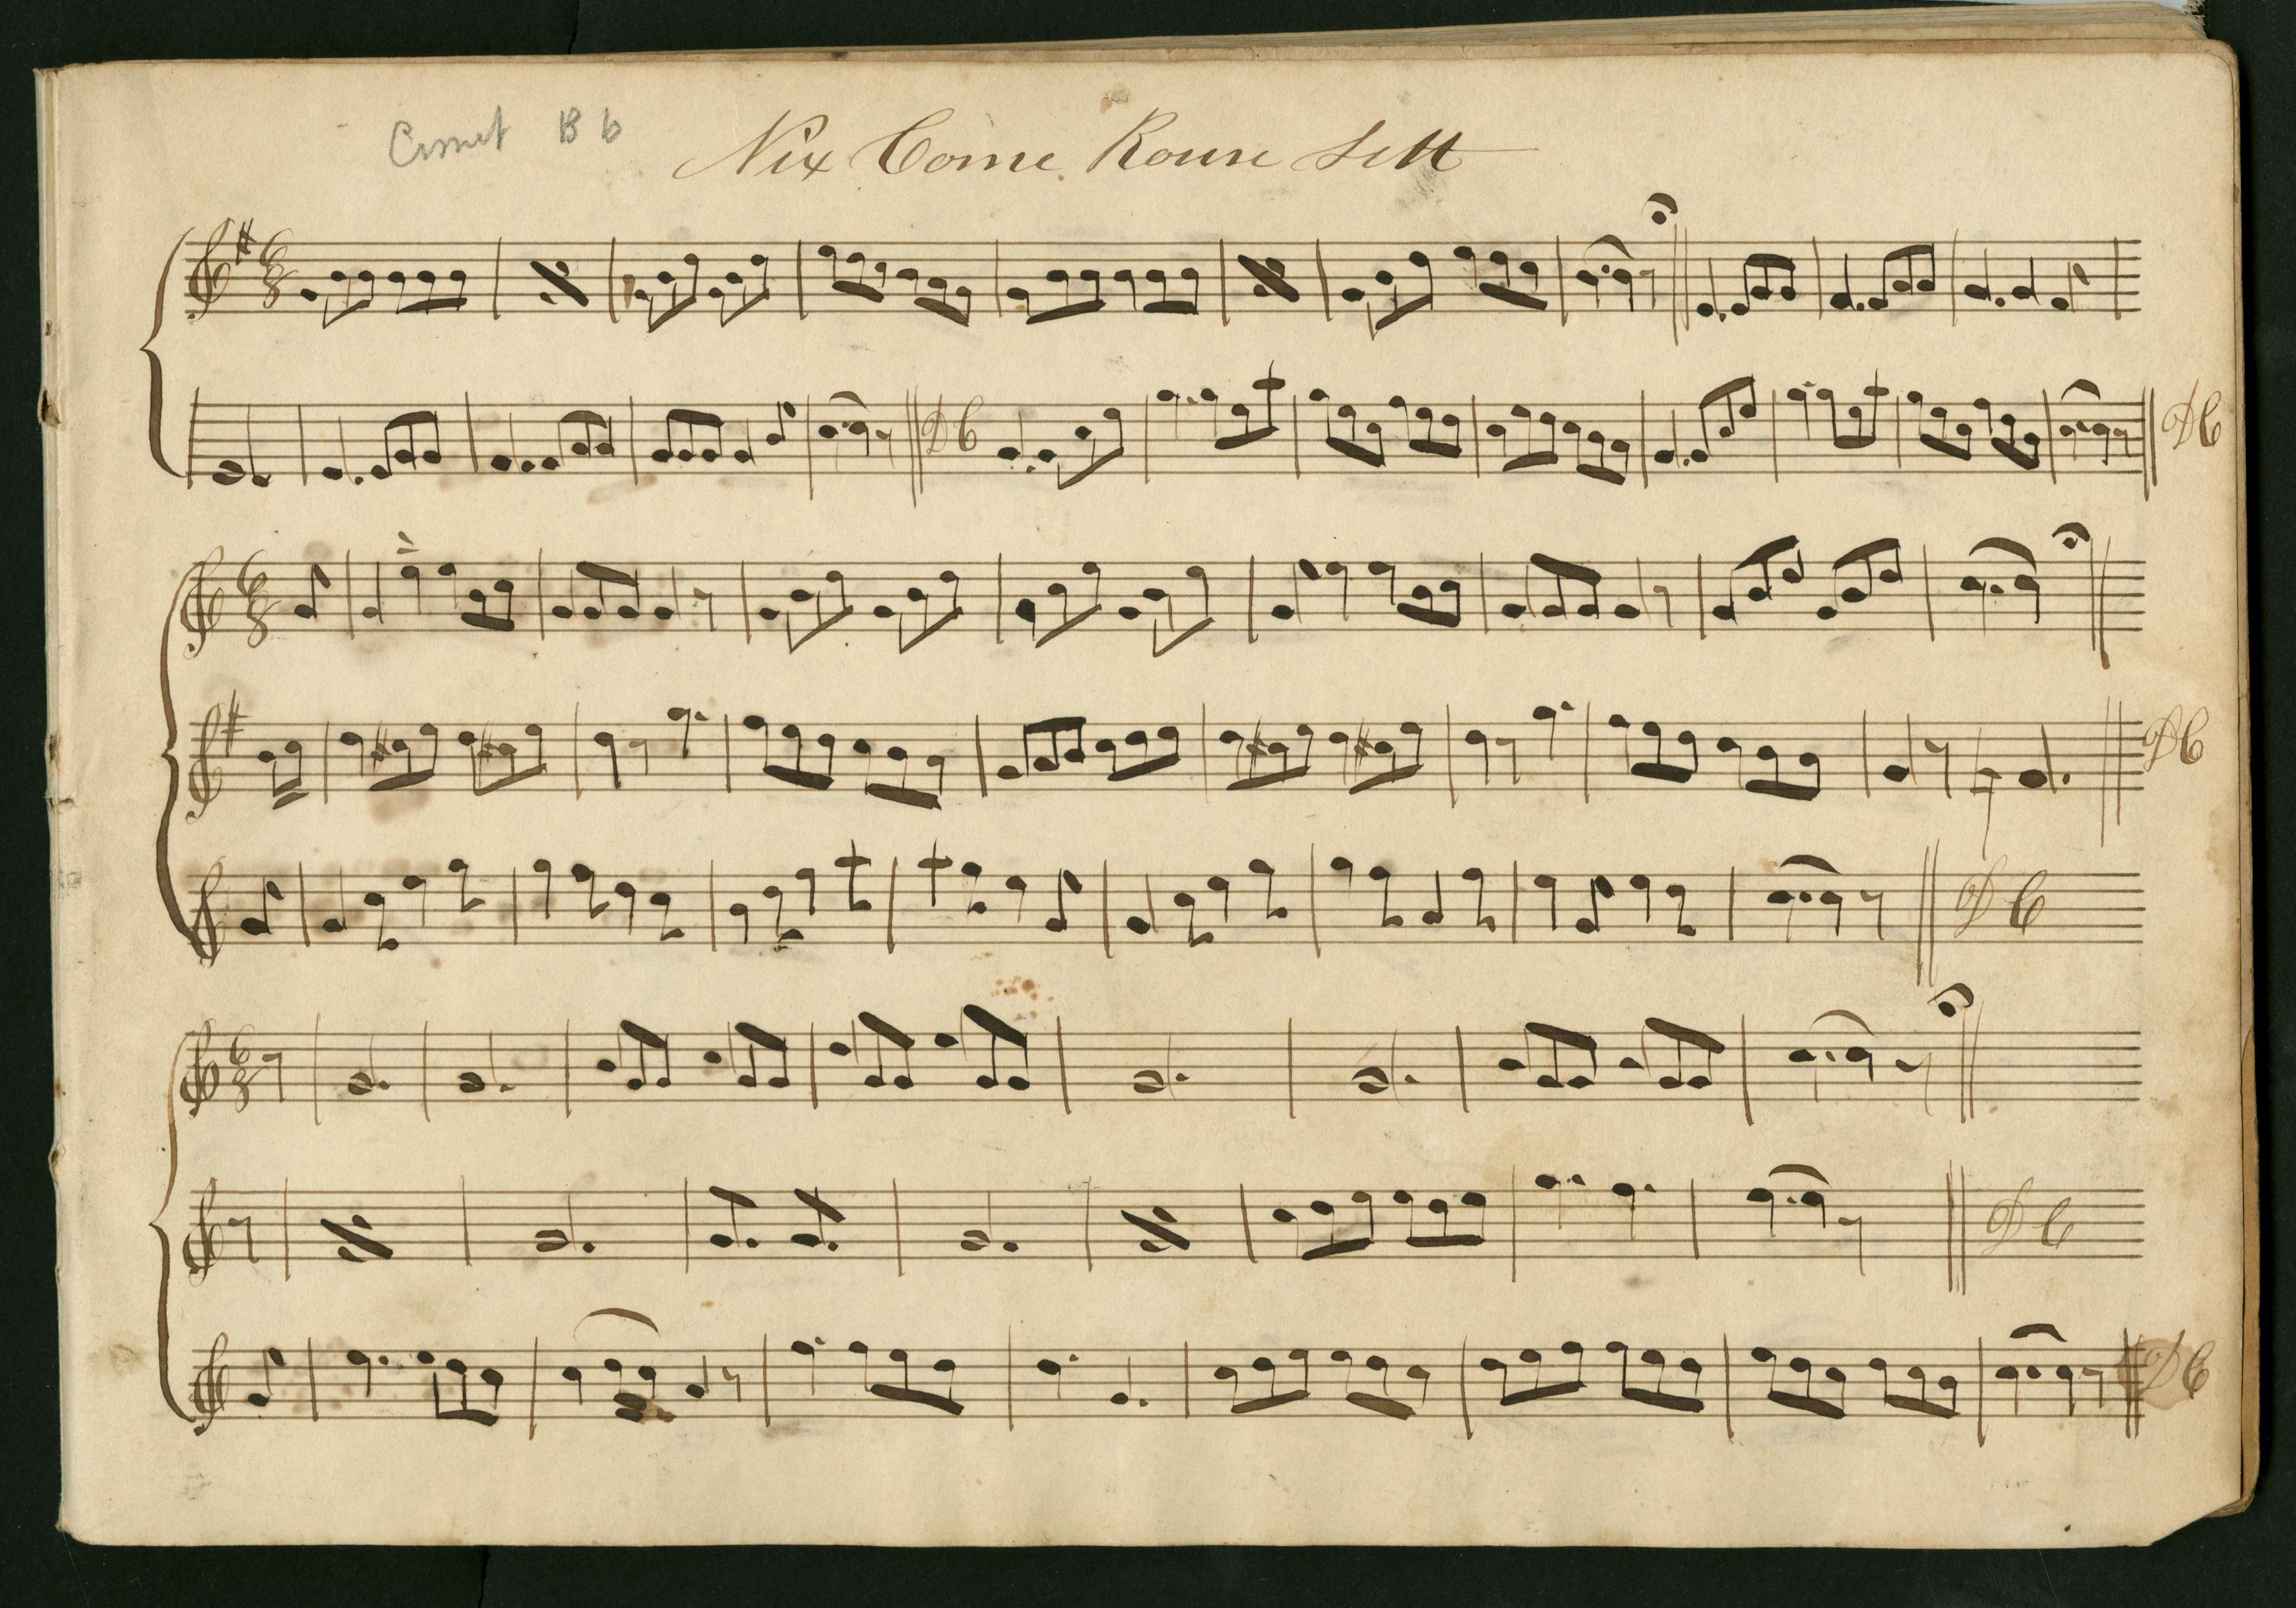 Cornet B b
Nix Come Rouse Sett
6 8
D C
D C
6 8
D C
D C
6 8
D C
D C